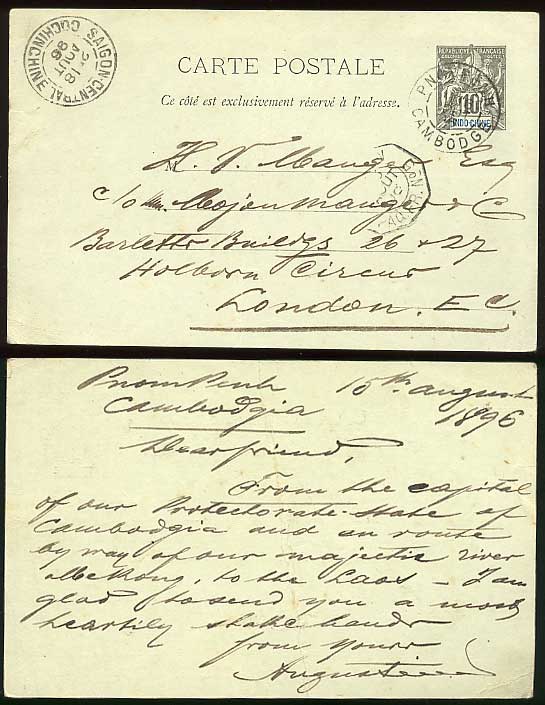 SAIGON-CENTRAL
18 AOUT 96
COCHINCHINE
REPUBLIQUE FRANÇAISE
COLONIES POSTES
10
INDO-CHINE
CAMBODGE
CARTE POSTALE
Ce côté est exclusivement réservé à l'adresse.
M H. V. Esq
c/o & Co
Barletts Buildgs 26 + 27
Holborn Circus
London. E C.
PnomPenh 15th august
Cambodgia 1896
Dear friend,
From the capital
of our Protectorate-state of
Cambodgia and en route
by way of our majestic river
Mekong, to the Laos - I am
glad to send you a most
heartily shake hands
from yours